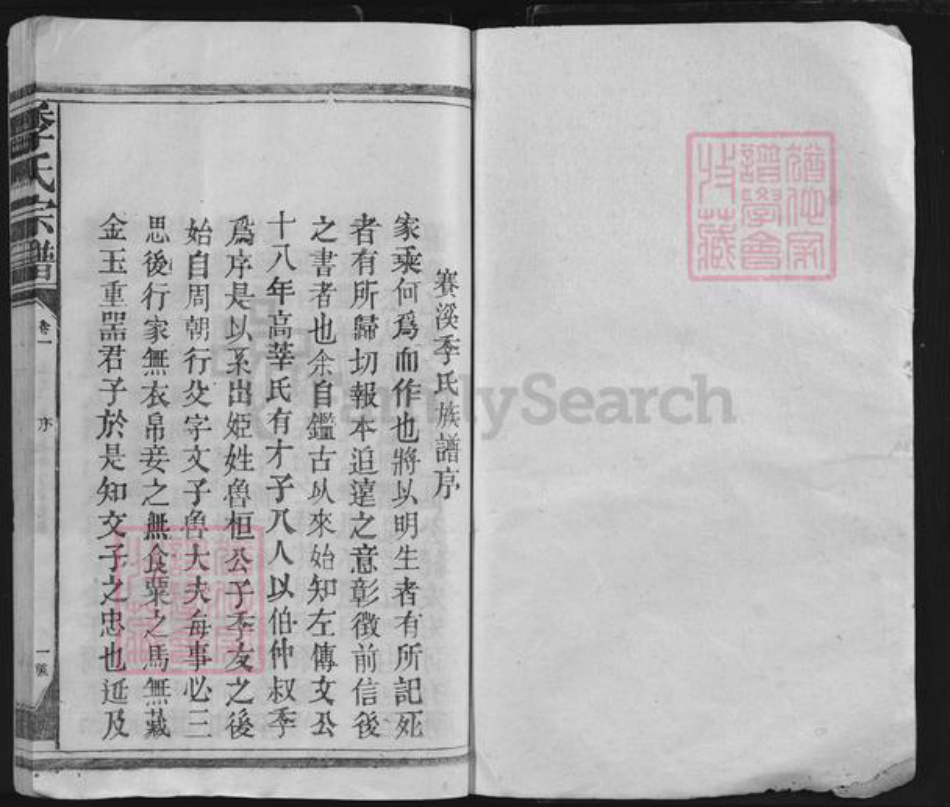 賽溪季氏族譜序
家乘何爲而作也將以明生者有所記死
者有所歸切報本追遠之意彰徵前信後
之書者也余自鑑古以來始知左傳文公
十八年高莘氏有才子八人以伯仲叔季
爲序是以系出姬姓魯桓公子季友之後
始自周朝行父字文子魯大夫每事必三
思後行家無衣帛妾之無食粟之馬無藏
金玉重器君子於是知文子之忠也延及
季氏宗譜
卷一
序
一
譜學會
收藏
FamilySearch